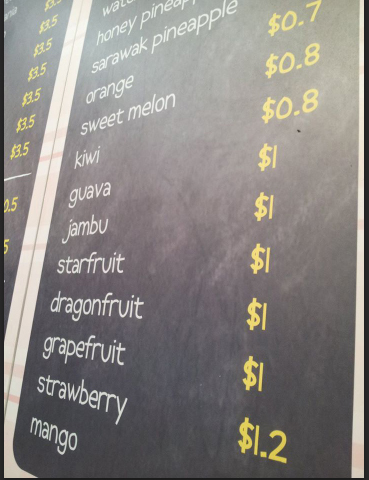 $3.5
$3.5
$3.5
$3.5
$3.5
$3.5
$3.5
0.5
5
honey
sarawak pineapple
orange $0.7
sweet melon $0.8
kiwi $0.8
guava $1
jambu $1
starfruit $1
dragonfruit $1
grapefruit $1
strawberry $1.2
mango